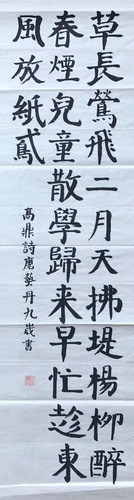 草長鶯飛二月天拂堤楊柳醉
春煙兒童散學歸来早忙趁東
風放紙鳶
高鼎詩唐藝丹九歲書